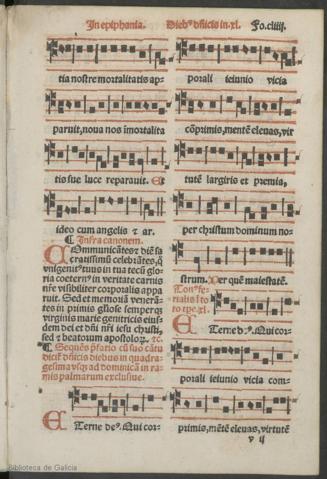 In epiphania. Dieb⁹ dñicis in.xl. Fo.cliiij.
tia nostre mortalitatis ap-
paruit, noua nos ĩmortalita
tis sue luce reparauit. Et
ideo cum angelis ⁊ ar.
¶ Infra canonem.
COmmunicãtes ⁊ diẽ sa
cratissimũ celebrãtes, q̃
vnigenit⁹ tuus in tua tecũ glo
ria coetern⁹ in veritate carnis
nr̃e visibiliter corporalis appa
ruit. Sed et memoriã venerã-
tes in primis gl̃iose semperq̃
virginis marie genetricis eius
dem dei et dñi nr̃i iesu christi,
sed ⁊ beatorum apostoloꝝ. ⁊c.
¶ Sequẽs p̃fatio cũ suo cãtu
dicit̃ dñicis diebus in quadra
gesima vsq̃ ad dominicã in ra
mis palmarum exclusiue.
Eterne de⁹. Qui cor-
porali ieiunio vicia
cõprimis, mentẽ eleuas, vir
tutẽ largiris et premia,
per christum dominum no-
strum. Per quẽ maiestatẽ.
Ton⁹ fe-
rialis
Eterne d⁹. Qui cor-
porali ieiunio vicia com-
primis, mẽtẽ eleuas, virtutẽ
v ij
Biblioteca de Galicia